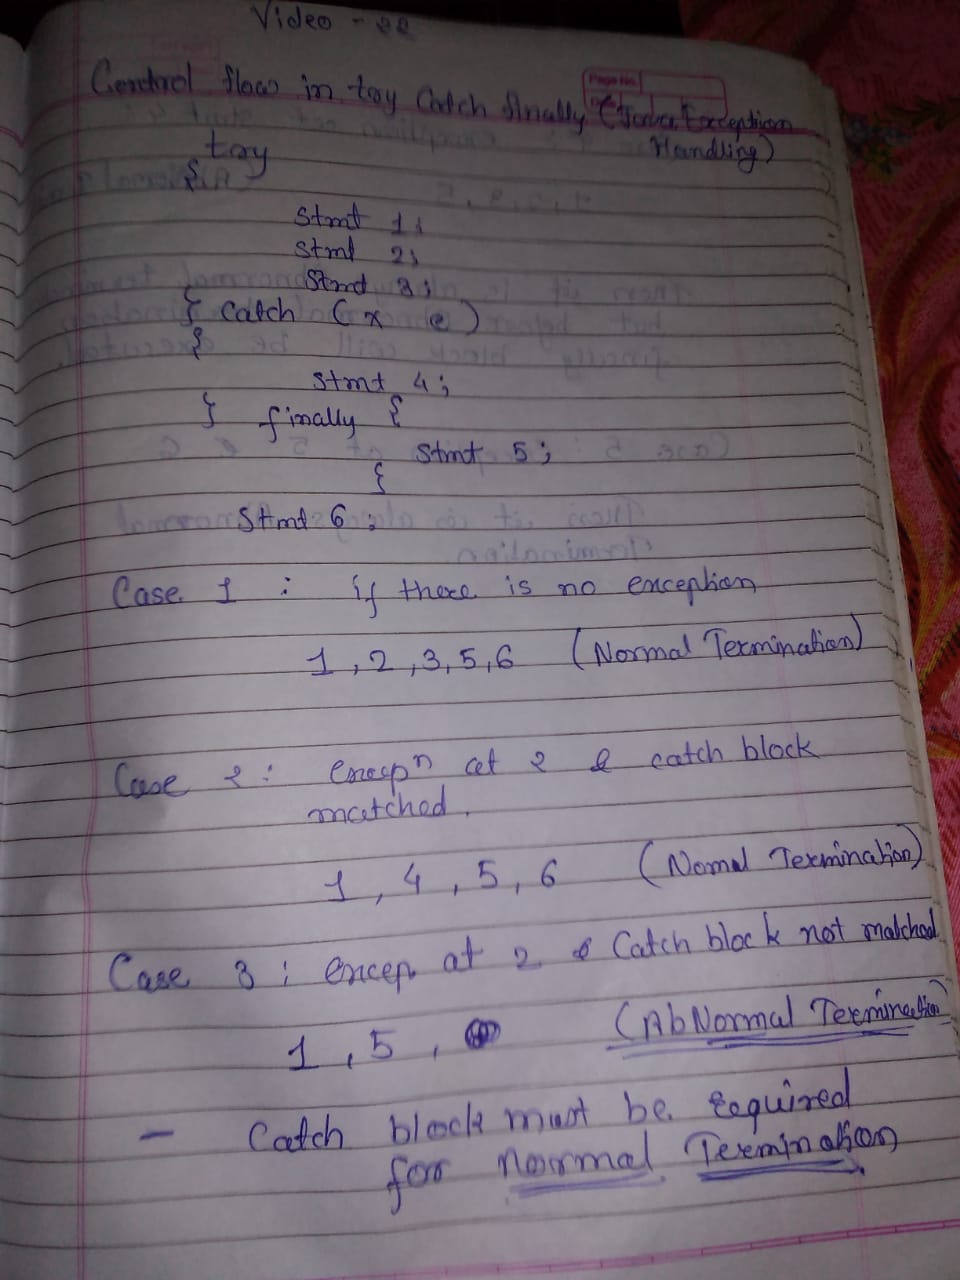 Video - 22
Page No.
Control flow in try Catch finally (Java Exception
Handling)
try
{
Stmt 1;
Stmt 2;
Stmt 3;
} Catch (x e)
{
Stmt 4;
} finally {
Stmt 5;
}
Stmt 6;
Case 1 : if there is no exception
1, 2, 3, 5, 6 (Normal Termination)
Case 2 : excepn at 2 & catch block
matched.
1, 4, 5, 6 (Nomal Termination)
Case 3 : excep at 2 & Catch block not matched
1, 5, (AbNormal Termination)
- Catch block must be required
for normal Termination